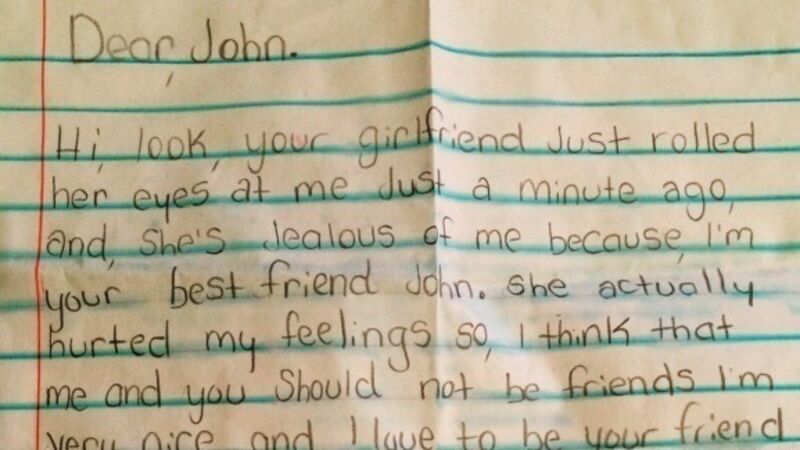 Dear, John.
Hi, look, your girlfriend Just rolled
her eyes at me Just a minute ago,
and, she's Jealous of me because, I'm
your best friend John. she actually
hurted my feelings so, I think that
me and you Should not be friends I'm
very nice and I love to be your friend